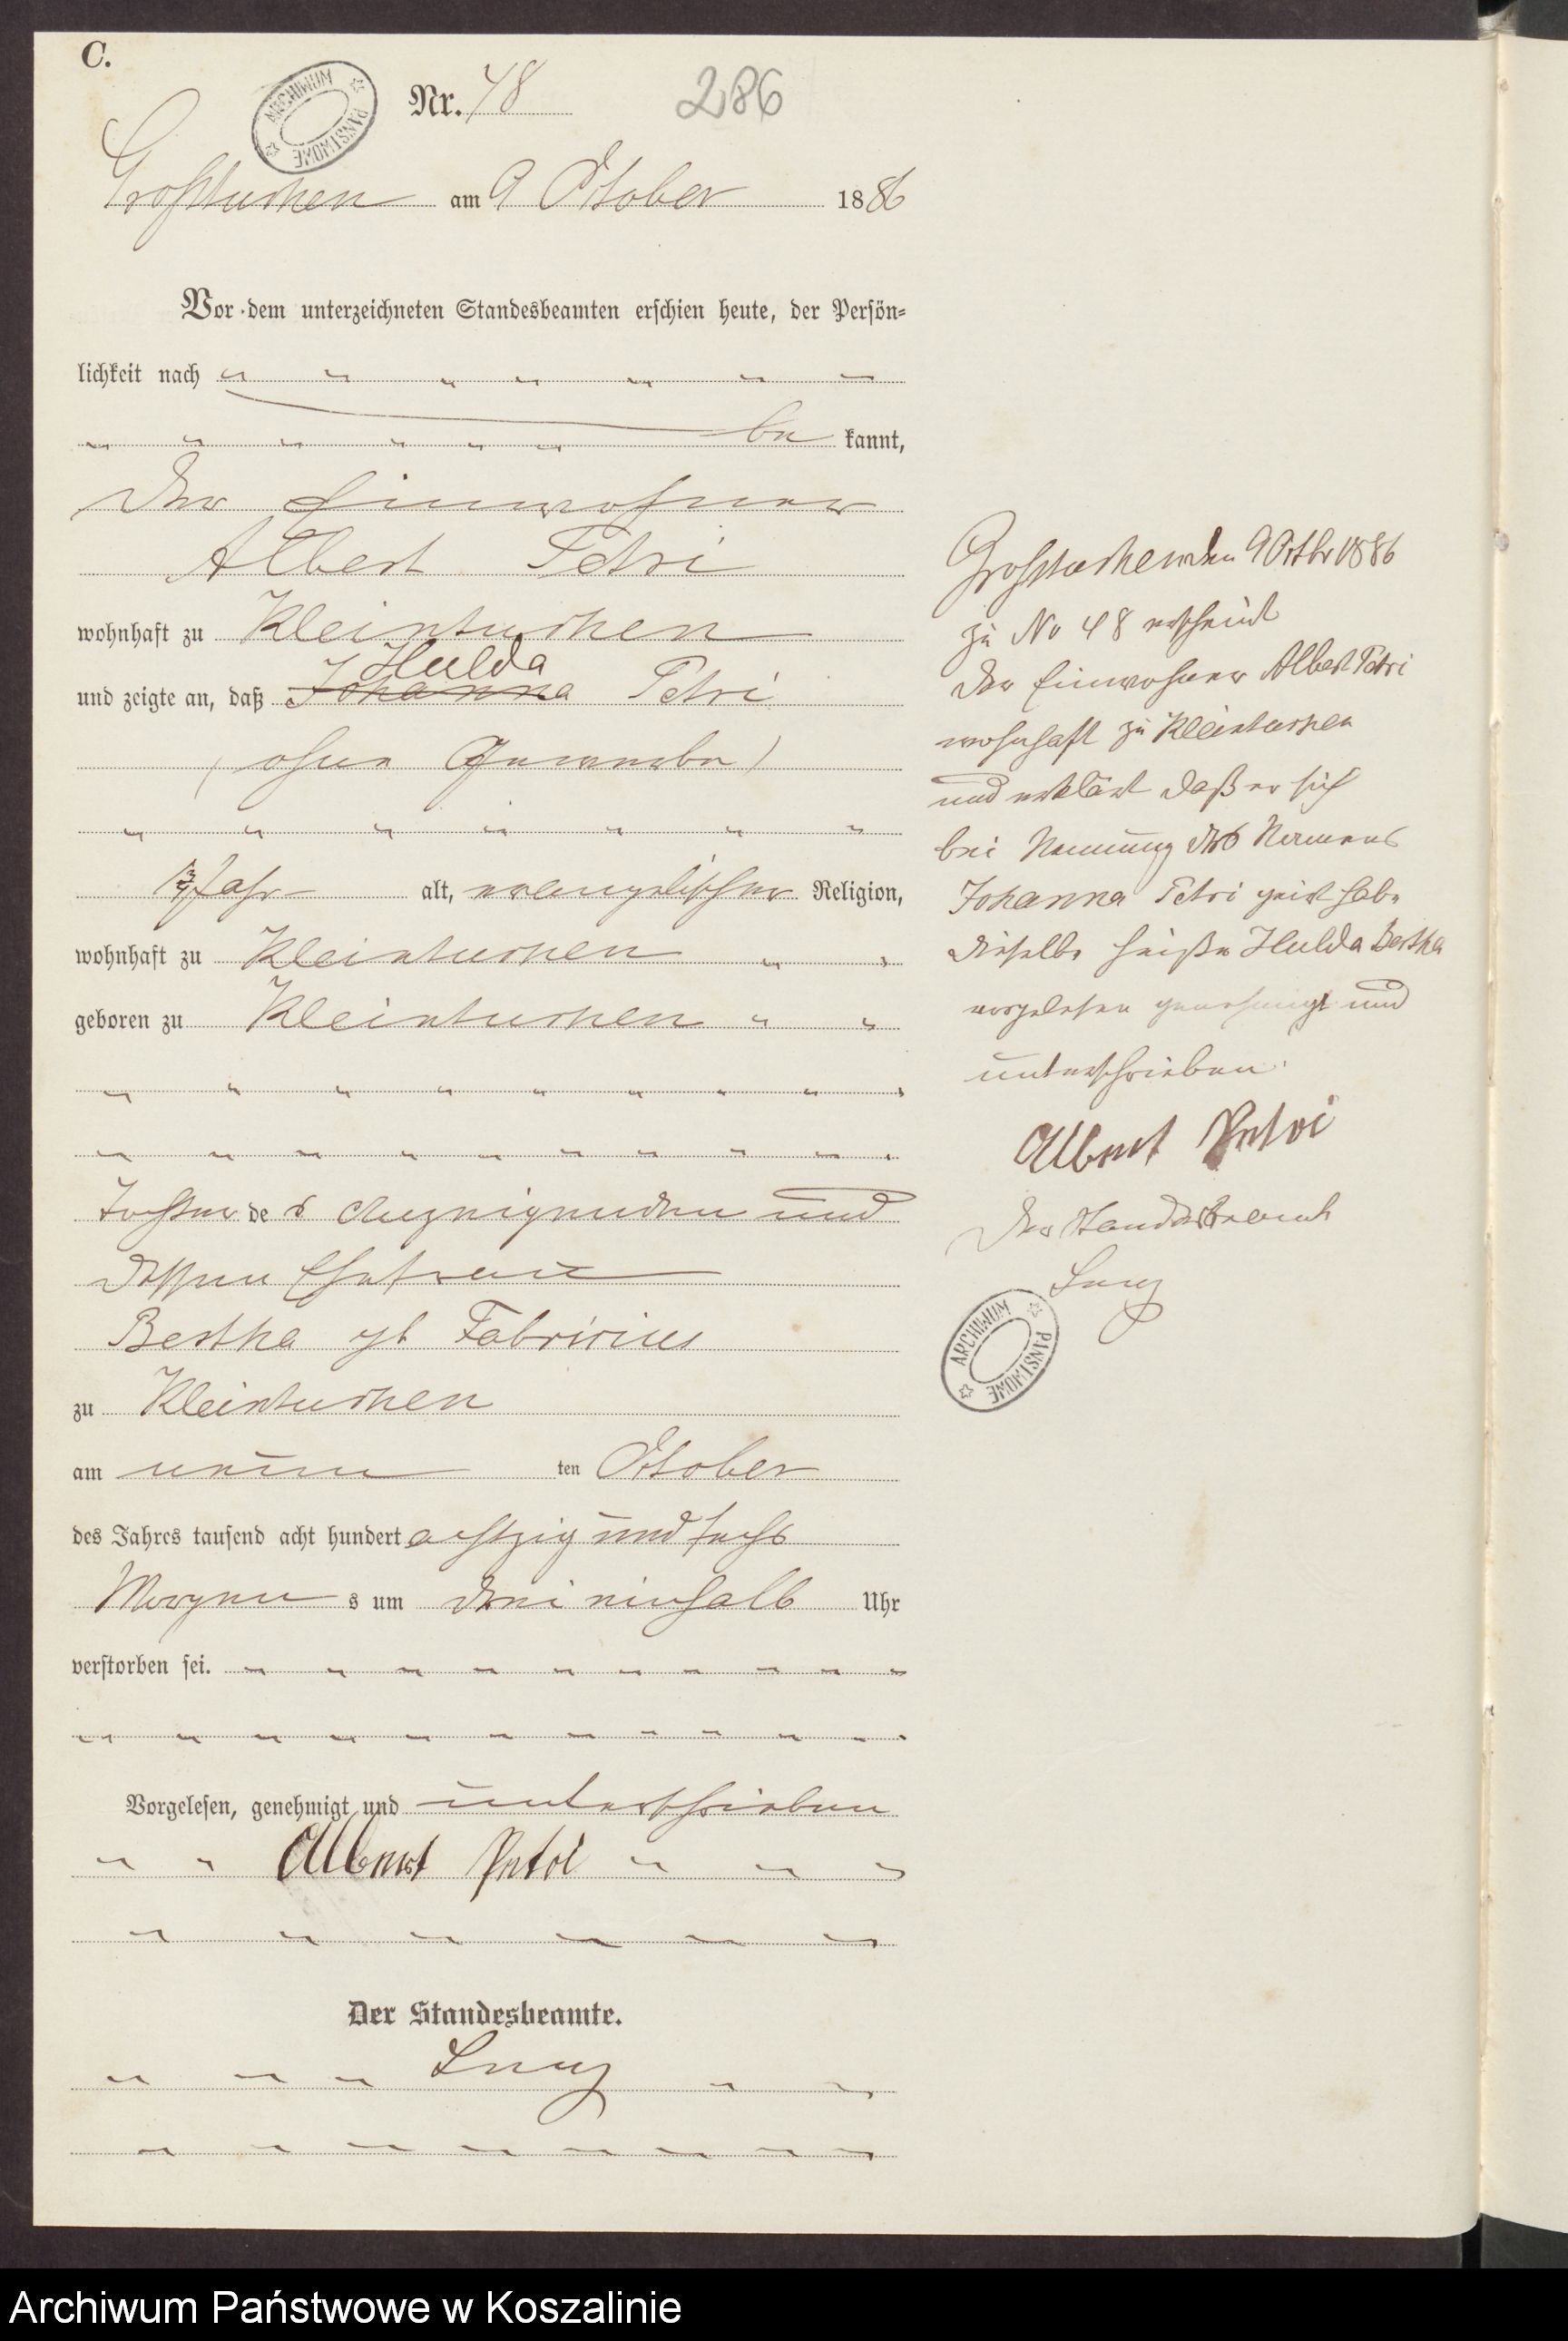 C.
Nr. 48
286
ARCHIWUM PAŃSTWOWE
Großtuchen am 9 October 1886
Vor dem unterzeichneten Standesbeamten erschien heute, der Persön=
lichkeit nach
be kannt,
Der Einwohner
Albert Petri
wohnhaft zu Kleintuchen
Hulda
und zeigte an, daß Johanna Petri
(ohne Gewerbe)
Jahr alt, evangelischer Religion,
wohnhaft zu Kleintuchen
geboren zu Kleintuchen
Tochter des Anzeigenden und
dessen Ehefrau
Bertha gb Fabricius
zu Kleintuchen
am neun ten October
des Jahres tausend acht hundert achtzig und sechs
Morgen s um drei einhalb Uhr
verstorben sei.
Vorgelesen, genehmigt und unterschrieben
Albert Petri
Der Standesbeamte.
Lenz
Großtuchen den 9 Octbr 1886
zu No 48 erscheint
Der Einwohner Albert Petri
wohnhaft zu Kleintuchen
und erklärt daß er sich
bei Nennung des Namens
Johanna Petri geirt habe
dieselbe heiße Hulda Bertha
vorgelesen genehmigt und
unterschrieben.
Albert Petri
Der Standesbeamte
Lenz
ARCHIWUM PAŃSTWOWE
Archiwum Państwowe w Koszalinie